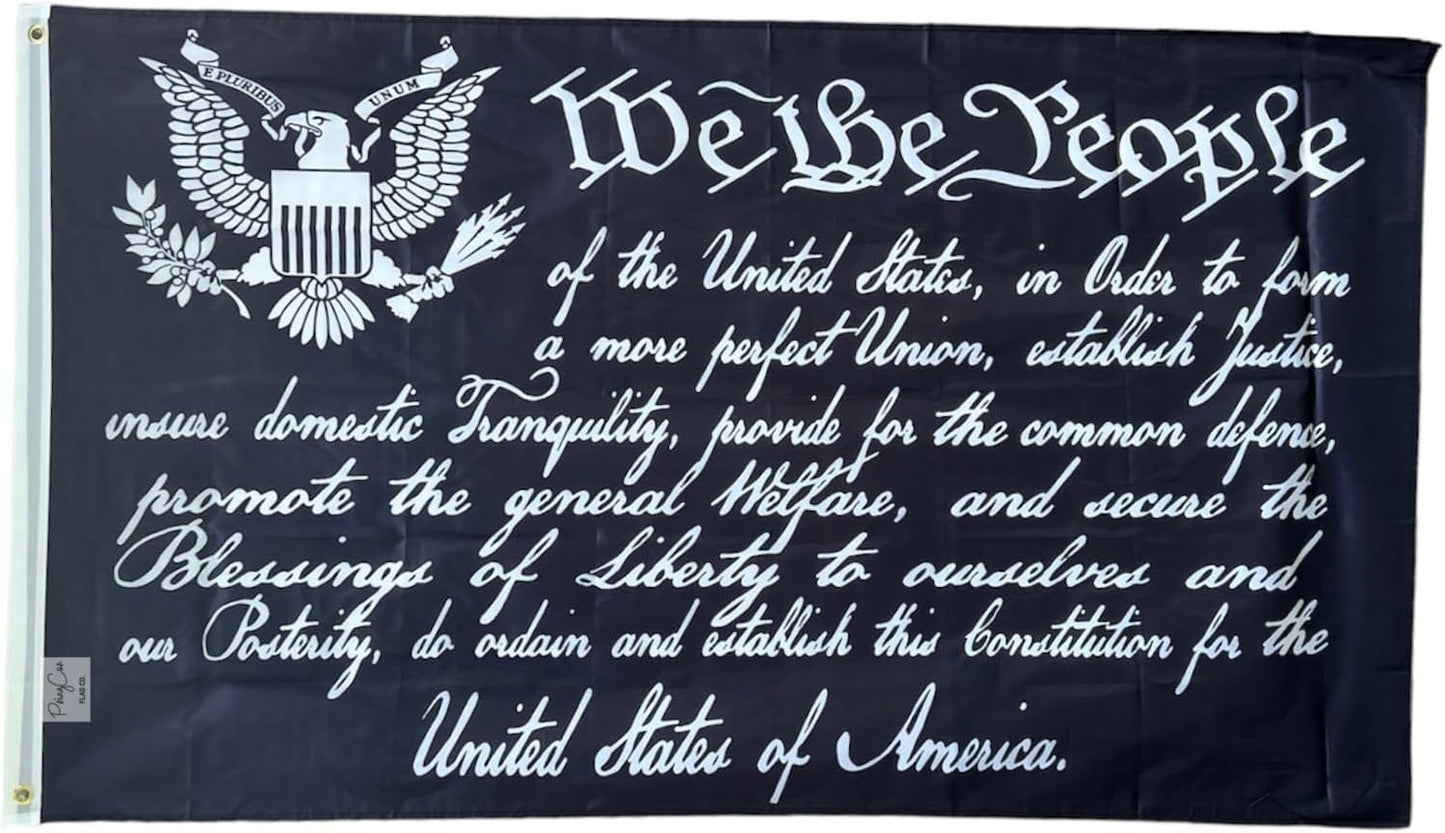 E PLURIBUS UNUM
We the People
of the United States, in Order to form
a more perfect Union, establish Justice,
insure domestic Tranquility, provide for the common defence,
promote the general Welfare, and secure the
Blessings of Liberty to ourselves and
our Posterity, do ordain and establish this Constitution for the
United States of America.
FLAG CO.